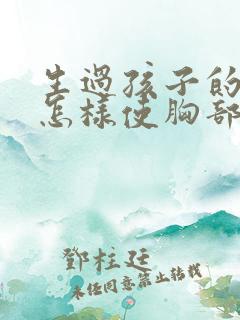 生過孩子的
怎樣使胸部
鄧柱廷
未经同意禁止转载